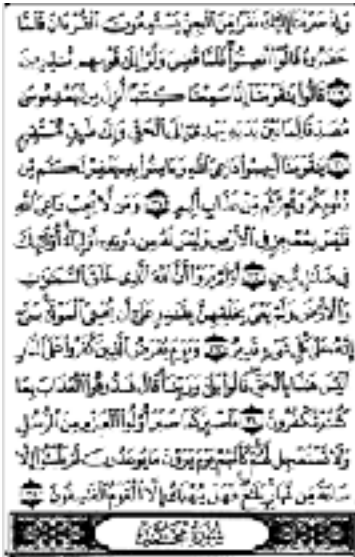 وَإِذْ صَرَفْنَا إِلَيْكَ نَفَرًا مِّنَ الْجِنِّ يَسْتَمِعُونَ الْقُرْآنَ فَلَمَّا
حَضَرُوهُ قَالُوا أَنصِتُوا فَلَمَّا قُضِيَ وَلَّوْا إِلَىٰ قَوْمِهِم مُّنذِرِينَ
٢٩ قَالُوا يَاقَوْمَنَا إِنَّا سَمِعْنَا كِتَابًا أُنزِلَ مِن بَعْدِ مُوسَىٰ
مُصَدِّقًا لِّمَا بَيْنَ يَدَيْهِ يَهْدِي إِلَى الْحَقِّ وَإِلَىٰ طَرِيقٍ مُّسْتَقِيمٍ
٣٠ يَاقَوْمَنَا أَجِيبُوا دَاعِيَ اللَّهِ وَآمِنُوا بِهِ يَغْفِرْ لَكُم مِّن
ذُنُوبِكُمْ وَيُجِرْكُم مِّنْ عَذَابٍ أَلِيمٍ ٣١ وَمَن لَّا يُجِبْ دَاعِيَ اللَّهِ
فَلَيْسَ بِمُعْجِزٍ فِي الْأَرْضِ وَلَيْسَ لَهُ مِن دُونِهِ أَوْلِيَاءُ أُولَٰئِكَ
فِي ضَلَالٍ مُّبِينٍ ٣٢ أَوَلَمْ يَرَوْا أَنَّ اللَّهَ الَّذِي خَلَقَ السَّمَاوَاتِ
وَالْأَرْضَ وَلَمْ يَعْيَ بِخَلْقِهِنَّ بِقَادِرٍ عَلَىٰ أَن يُحْيِيَ الْمَوْتَىٰ بَلَىٰ
إِنَّهُ عَلَىٰ كُلِّ شَيْءٍ قَدِيرٌ ٣٣ وَيَوْمَ يُعْرَضُ الَّذِينَ كَفَرُوا عَلَى النَّارِ
أَلَيْسَ هَٰذَا بِالْحَقِّ قَالُوا بَلَىٰ وَرَبِّنَا قَالَ فَذُوقُوا الْعَذَابَ بِمَا
كُنتُمْ تَكْفُرُونَ ٣٤ فَاصْبِرْ كَمَا صَبَرَ أُولُو الْعَزْمِ مِنَ الرُّسُلِ
وَلَا تَسْتَعْجِل لَّهُمْ كَأَنَّهُمْ يَوْمَ يَرَوْنَ مَا يُوعَدُونَ لَمْ يَلْبَثُوا إِلَّا
سَاعَةً مِّن نَّهَارٍ بَلَاغٌ فَهَلْ يُهْلَكُ إِلَّا الْقَوْمُ الْفَاسِقُونَ ٣٥
سُورَةُ مُحَمَّدٍ